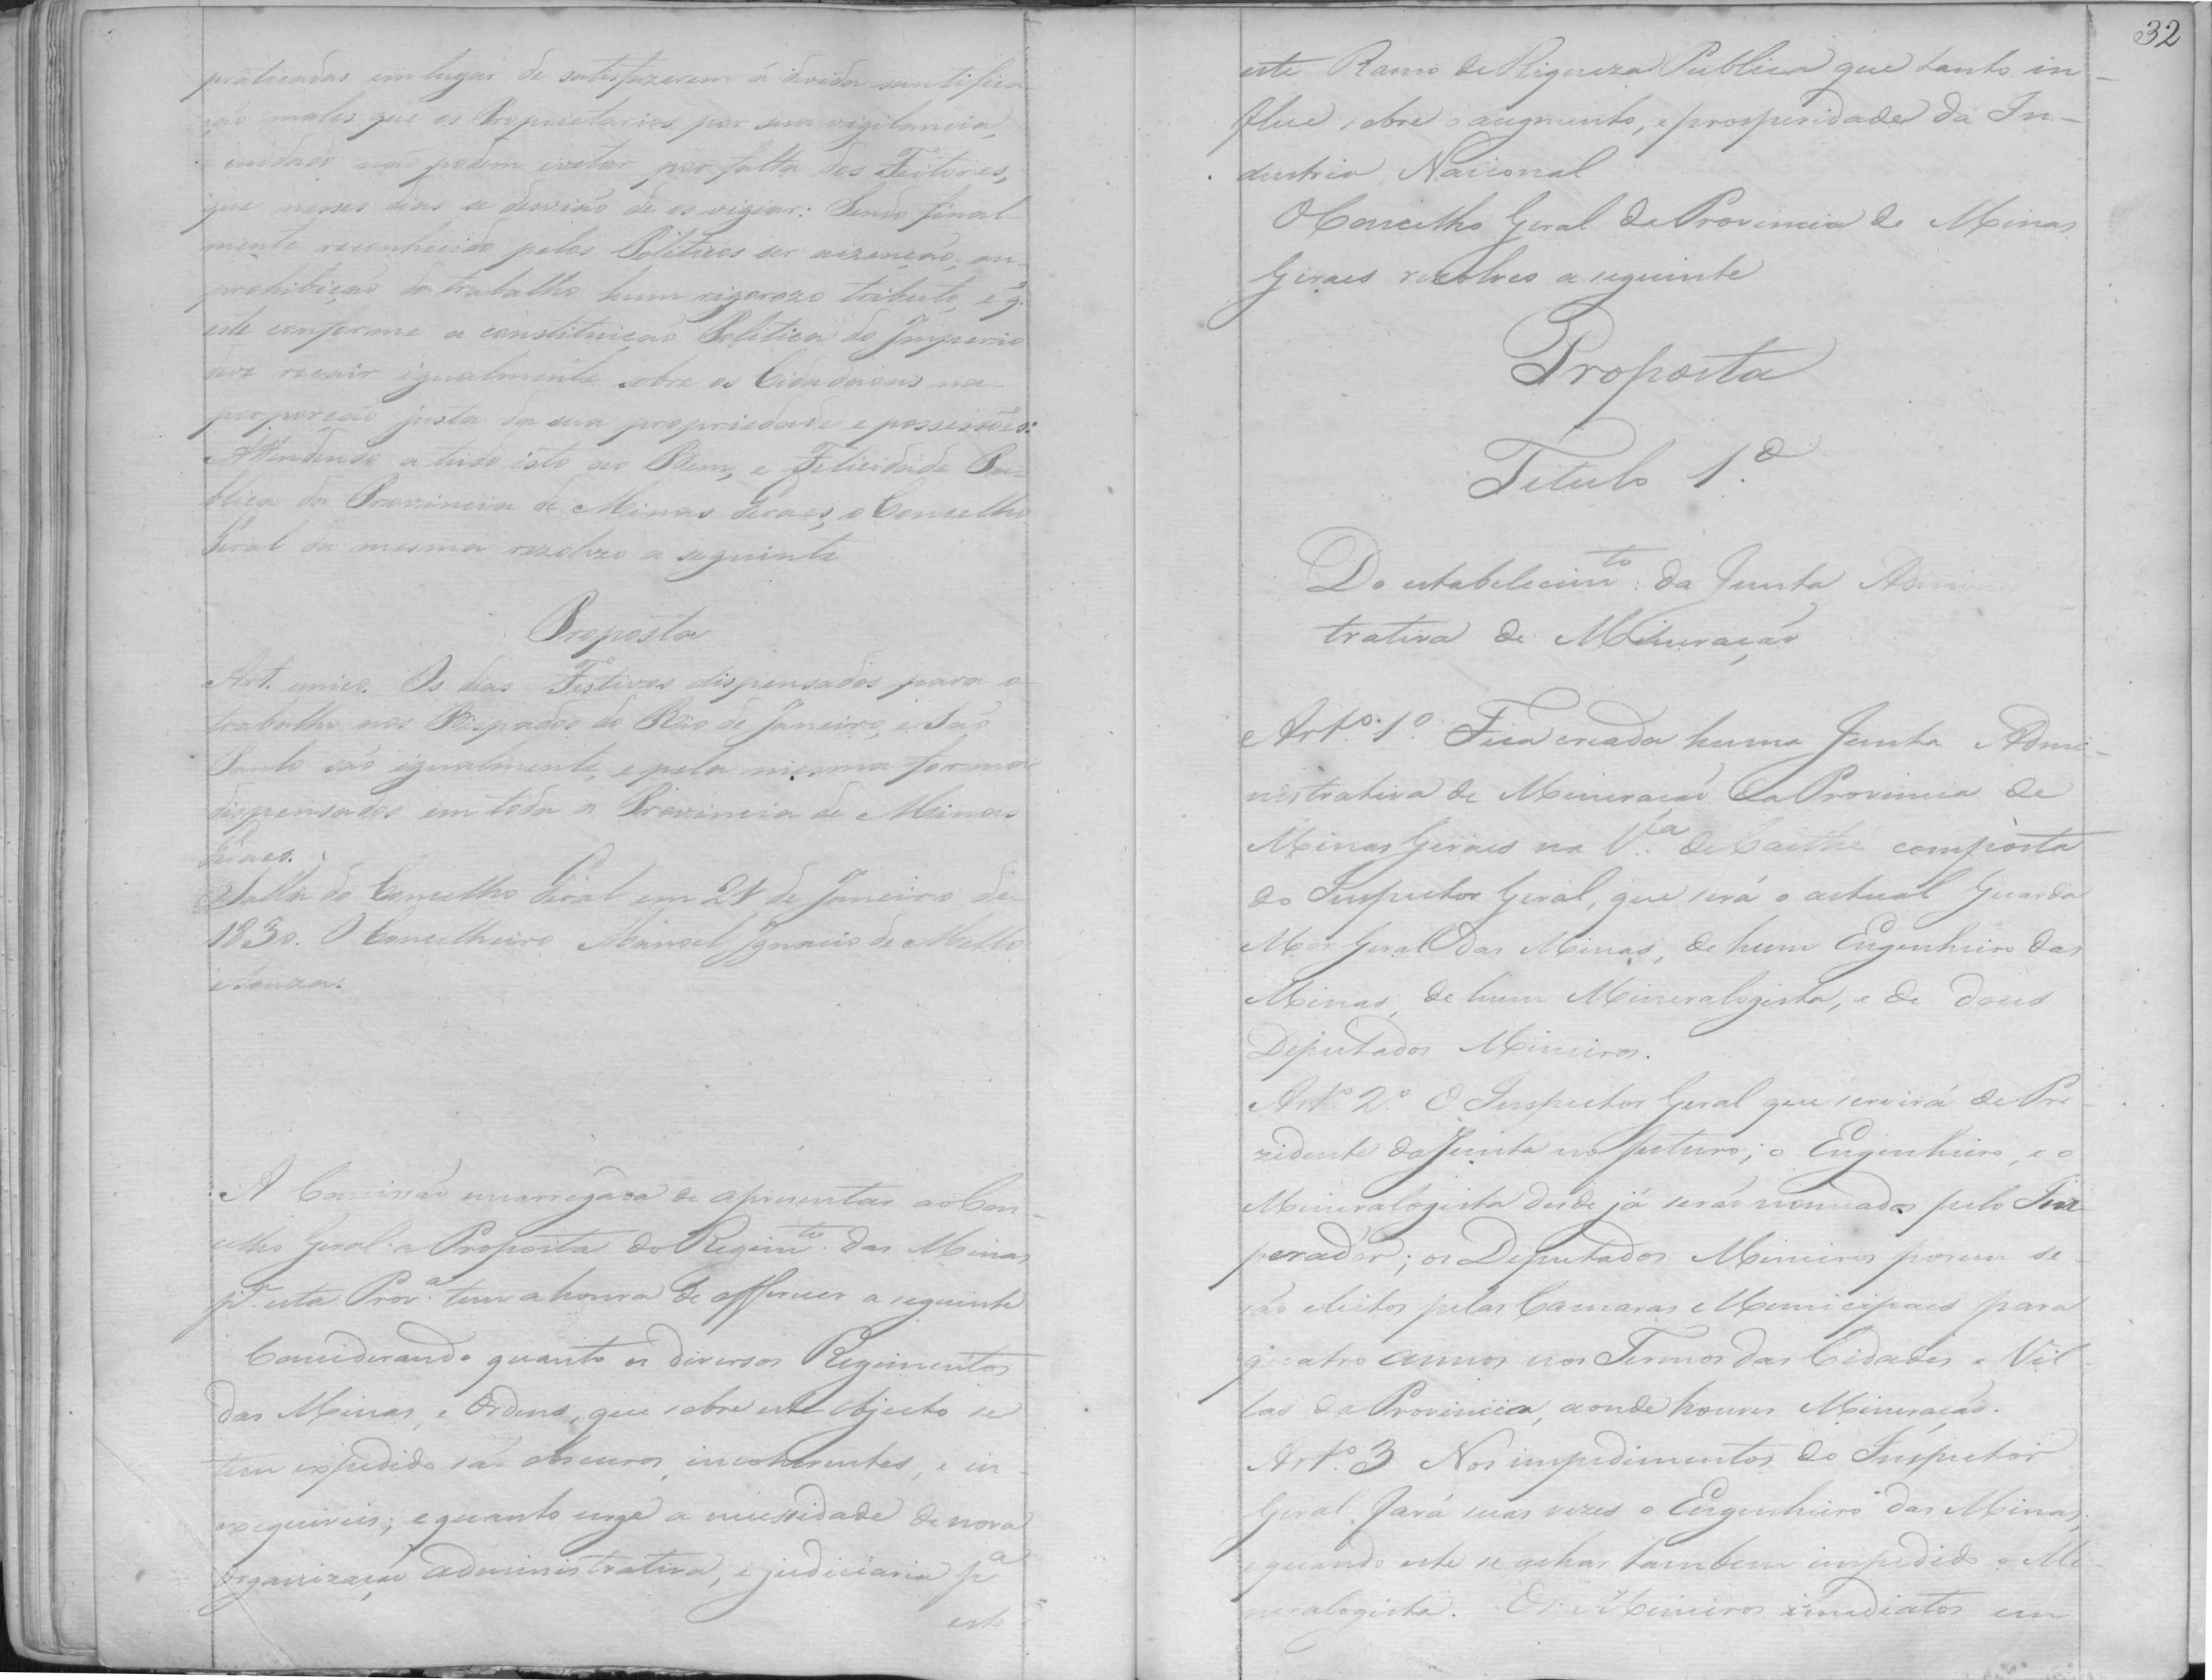 praticadas em lugar de satisfazerem á devida santifica-
ção males que os Proprietarios por sua vigilancia,
cuidado não podem evitar por falta dos Feitores,
que nesses dias se desvião de os vigiar: Sendo final-
mente reconhecido pelos Politicos ser aizenção, ou
prohibição do trabalho hum rigorozo tributo, e q.
este conforme a constituição Politica do Imperio
deve recair igualmente sobre os Cidadaons na
porporção justa da sua propriedade e possessões:
Attendendo a tudo isto ao Bem, e Felicidade Pu-
blica da Provincia de Minas Geraes, o Concelho
Geral da mesma rezolveo a seguinte
Proposta
Art. unico. Os dias Festivos dispensados para o
trabalho nos Bispados do Rio de Janeiro, e São
Paulo são igualmente, e pela mesma forma
dispensados em toda a Provincia de Minas
Geraes.
Salla do Concelho Geral em 21 de Janeiro de
1830. O Concelheiro Manoel Ignacio de Mello
e Souza.
A Comissão encarregada de apresentar ao Con-
celho Geral a Proposta do Regim.to das Minas
p.a esta Prov.a tem a honra de offerecer a seguinte
Considerando quanto os diversos Regimentos
das Minas, e Ordens, que sobre este objecto se
tem expedido são obscuros, incoherentes, e in-
exequiveis; e quanto urge a necessidade de nova
organização administrativa, e judiciaria p.a
este
32
este Ramo de Riqueza Publica que tanto in-
flue sobre o augmento, e prosperidade da In-
dustria Nacional
O Concelho Geral da Provincia de Minas
Geraes resolveo a seguinte
Proposta
Titulo 1.o
Do estabelecim.to da Junta Adminis
trativa de Mineração
Art.o 1.o Fica creada huma Junta Admi-
nistrativa de Mineração da Provincia de
Minas Geraes na V.a de Caithé composta
do Inspector Geral, que será o actual Guarda
Mór Geral das Minas, de hum Engenheiro das
Minas, de hum Mineralogista, e de dous
Deputados Mineiros.
Art.o 2.o O Inspector Geral que servirá de Pre-
zidente da Junta no futuro; o Engenheiro, e o
Mineralogista desde já serão nomeados pelo Im
perador; os Deputados Mineiros porem se-
rão eleitos pelas Camaras Municipaes para
quatro annos nos Termos das Cidades e Vil-
las da Provincia, aonde houver Mineração.
Art.o 3 Nos impedimentos do Inspector
Geral fará suas vezes o Engenheiro das Minas;
e quando este se achar tambem impedido o Mi-
neralogista. Os Mineiros immediatos em